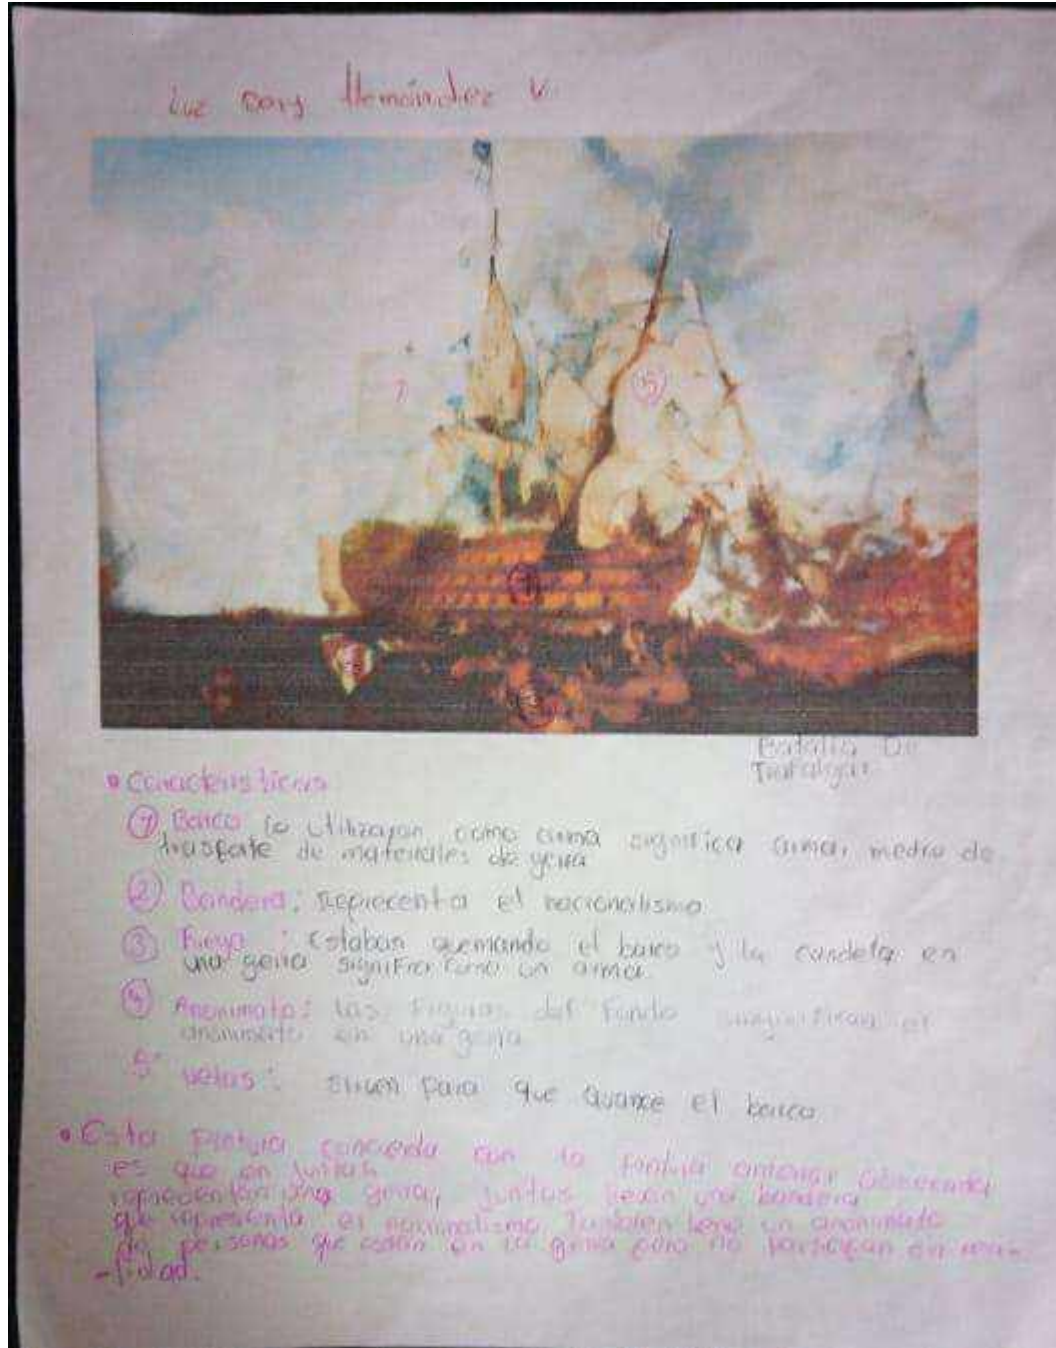 Luz Dary Hernández V.
Batalla De
Trafalgar
• Caracteristicas
① Barco lo utilizaron como arma significa arma, medio de
trasporte de materiales de gerra
② Bandera: representa el nacionalismo
③ Fuego: estaban quemando el barco y la candela en
una gerra significa como un arma
④ Anonimato: las figuras del fondo significan el
anonimato en una gerra
5 velas: sirven para que avance el barco
• Esta pintura concuerda con la pintura anterior observada
es que en juntas
representan una gerra, juntas llevan una bandera
que representa el nacionalismo. Tambien tiene un anonimato
de personas que están en la gerra pero no participan en
-lidad.